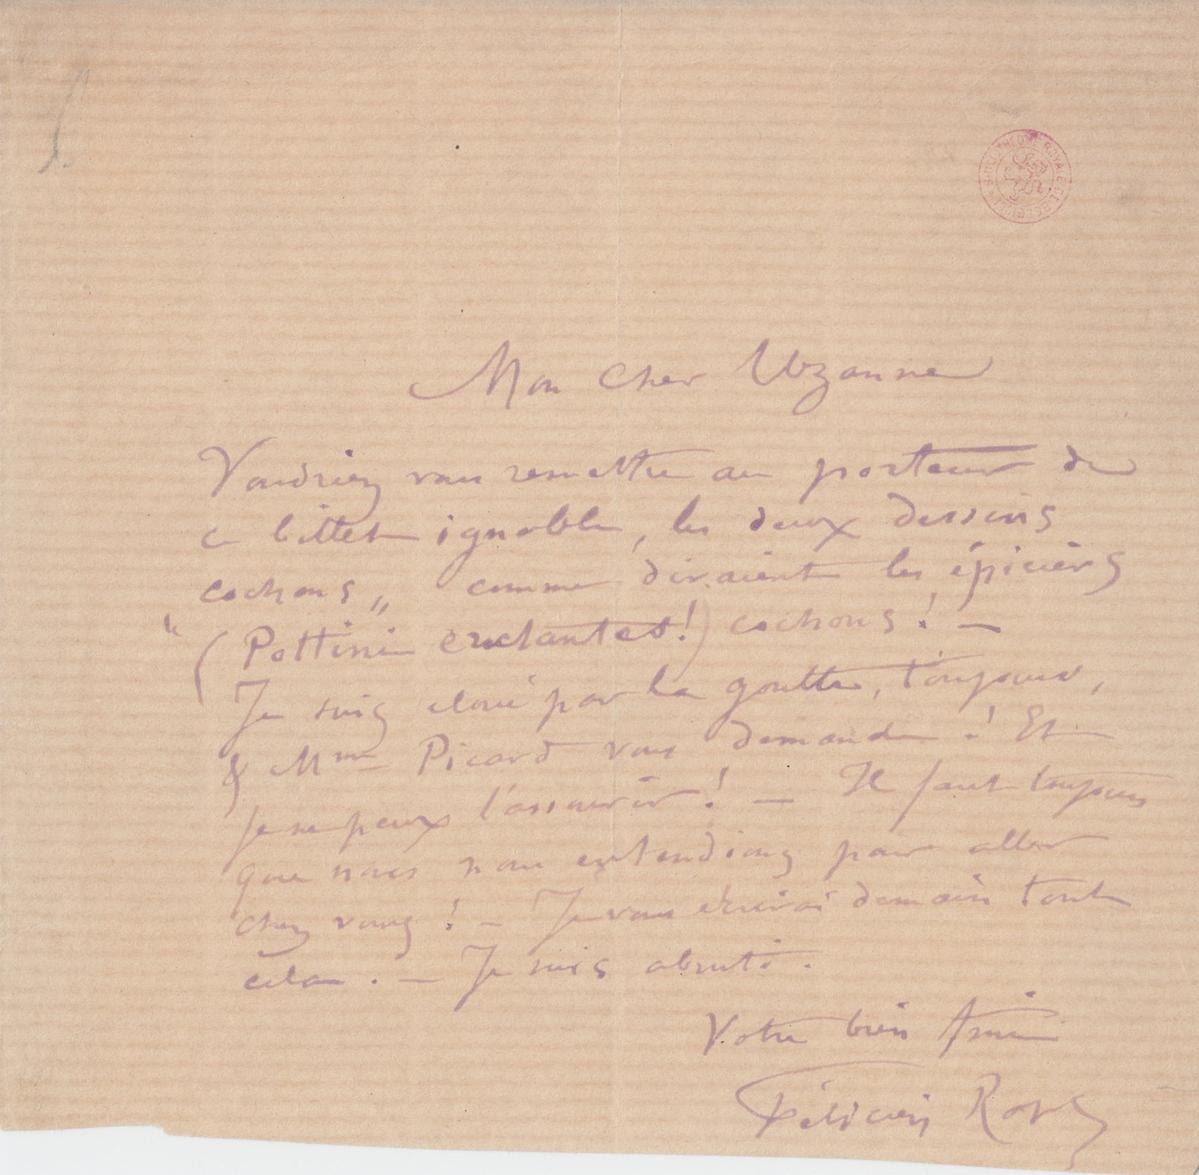 Mon Cher Uzanne
Voudriez vous remettre au porteur de
ce billet ignoble, les deux dessins
cochons „ comme diraient les épiciers
" (Pottini !) cochons ! —
Je suis cloué par la goutte, toujours,
& Mme Picard vous demande ! Et
je ne peux l'assouvir ! — Il faut toujours
que nous nous entendions pour aller
chez vous ! — Je vous écrirai demain tout
cela . — Je suis abruti .
Votre bien Ami
Félicien Rops